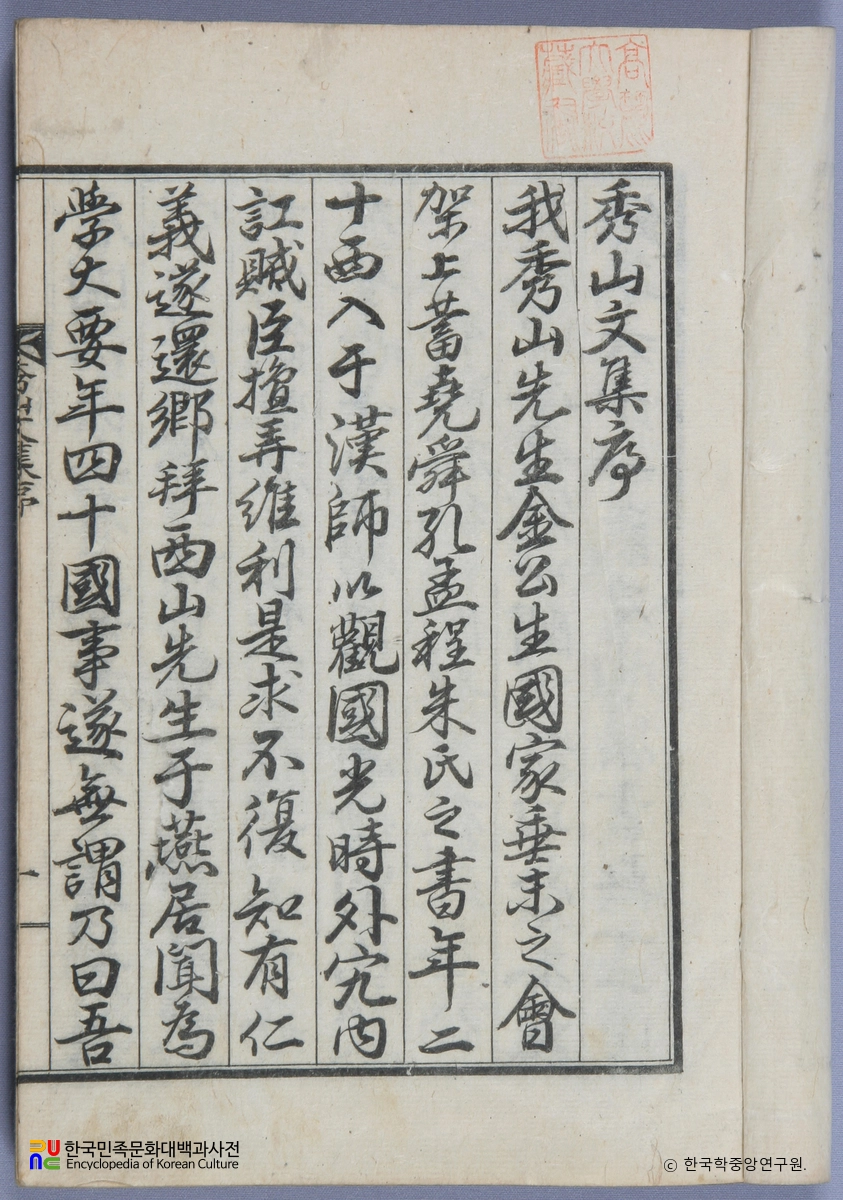 秀山文集序
我秀山先生金公生國家垂末之會
架上蓄堯舜孔孟程朱氏之書年二
十西入于漢師以觀國光時外宄內
訌賊臣擅弄維利是求不復知有仁
義遂還鄉拜西山先生于燕居聞為
學大要年四十國事遂無謂乃曰吾
한국민족문화대백과사전
Encyclopedia of Korean Culture
© 한국학중앙연구원.